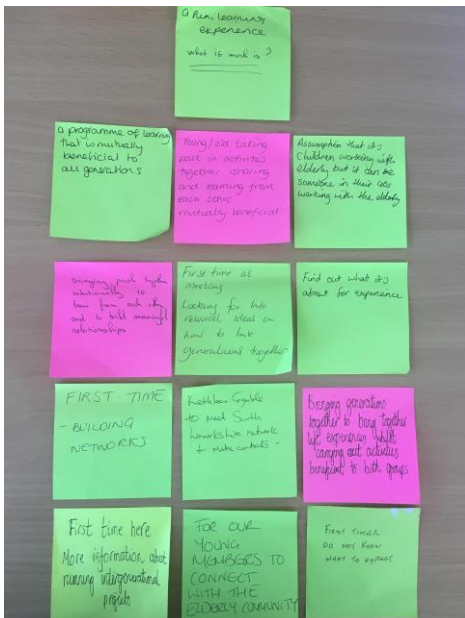 a fun, learning
experience
what is mosh is?
a programme of learning
that is mutually
beneficial to
all generations
Young/old taking
part in activities
together sharing
and learning from
each other
mutually beneficial
Assumption that it's
children working with
elderly but it can be
someone in their
working with the elderly
bringing people together
intentionally to
learn from each other
and to build meaningful
relationships
First time at
meeting
Looking for
resources, ideas on
how to link
generations together
Find out what it's
about for experience
FIRST TIME
- BUILDING
NETWORKS
to meet South
Lanarkshire network
+ make contacts -
Bringing generations
together to bring together
life experiences whilst
carrying out activities
beneficial to both groups
First time here
More information about
running intergenerational
projects
FOR OUR
YOUNG
MEMBERS TO
CONNECT
WITH THE
ELDERLY COMMUNITY
FIRST TIMER
DO NOT KNOW
WHAT TO EXPECT